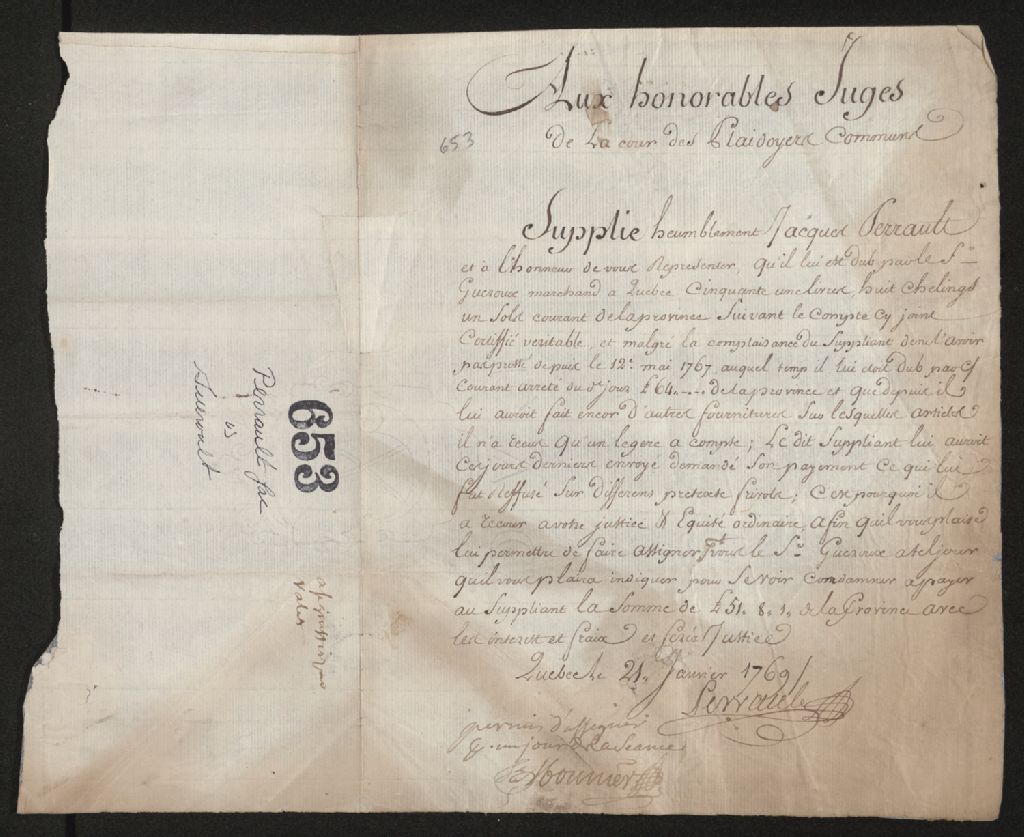 Aux honorables Juges
de La cour des Plaidoyers Communs
653
Supplie heumblement Jacques Perrault
et a l'honneur de vous Representer, Qu'il lui est dub par le Sr
Gueroux marchand a Quebec Cinquante une livres, huit Chelings
un Sols courant de la province Suivant le Compte Cy joint
Certiffié veritable, et malgré la complaisance du Suppliant de ne l'avoir
pas pressé depuis le 12e mai 1767, auquel temps il lui etoit dub par Ct
Courant arreté du d. jour £64 de la province et que depuis il
lui auroit fait encor d'autres fournitures Sur lesquelles articles
il n'a recus Qu'un legere a compte; Le dit Suppliant lui auroit
Ces jours derniers envoyé demandé Son payement Ce qui lui
fut Reffusé Sur Differens pretexte frivols; C'est pourquoi il
a recour a votre justice & Equité ordinaire, afin qu'il vous plaise
lui permettre de faire assigner le Sr Gueroux a tel jour
qu'il vous plaira indiquer pour Se voir Condamner a payer
au Suppliant la Somme de £51. 8. 1. de la Province avec
les interest et fraix et ferés Justice
Quebec le 21. Janvier 1769
Perrault
permis d'assigner
p. un jour de la Seance
653
Perrault
vs
Gueroult